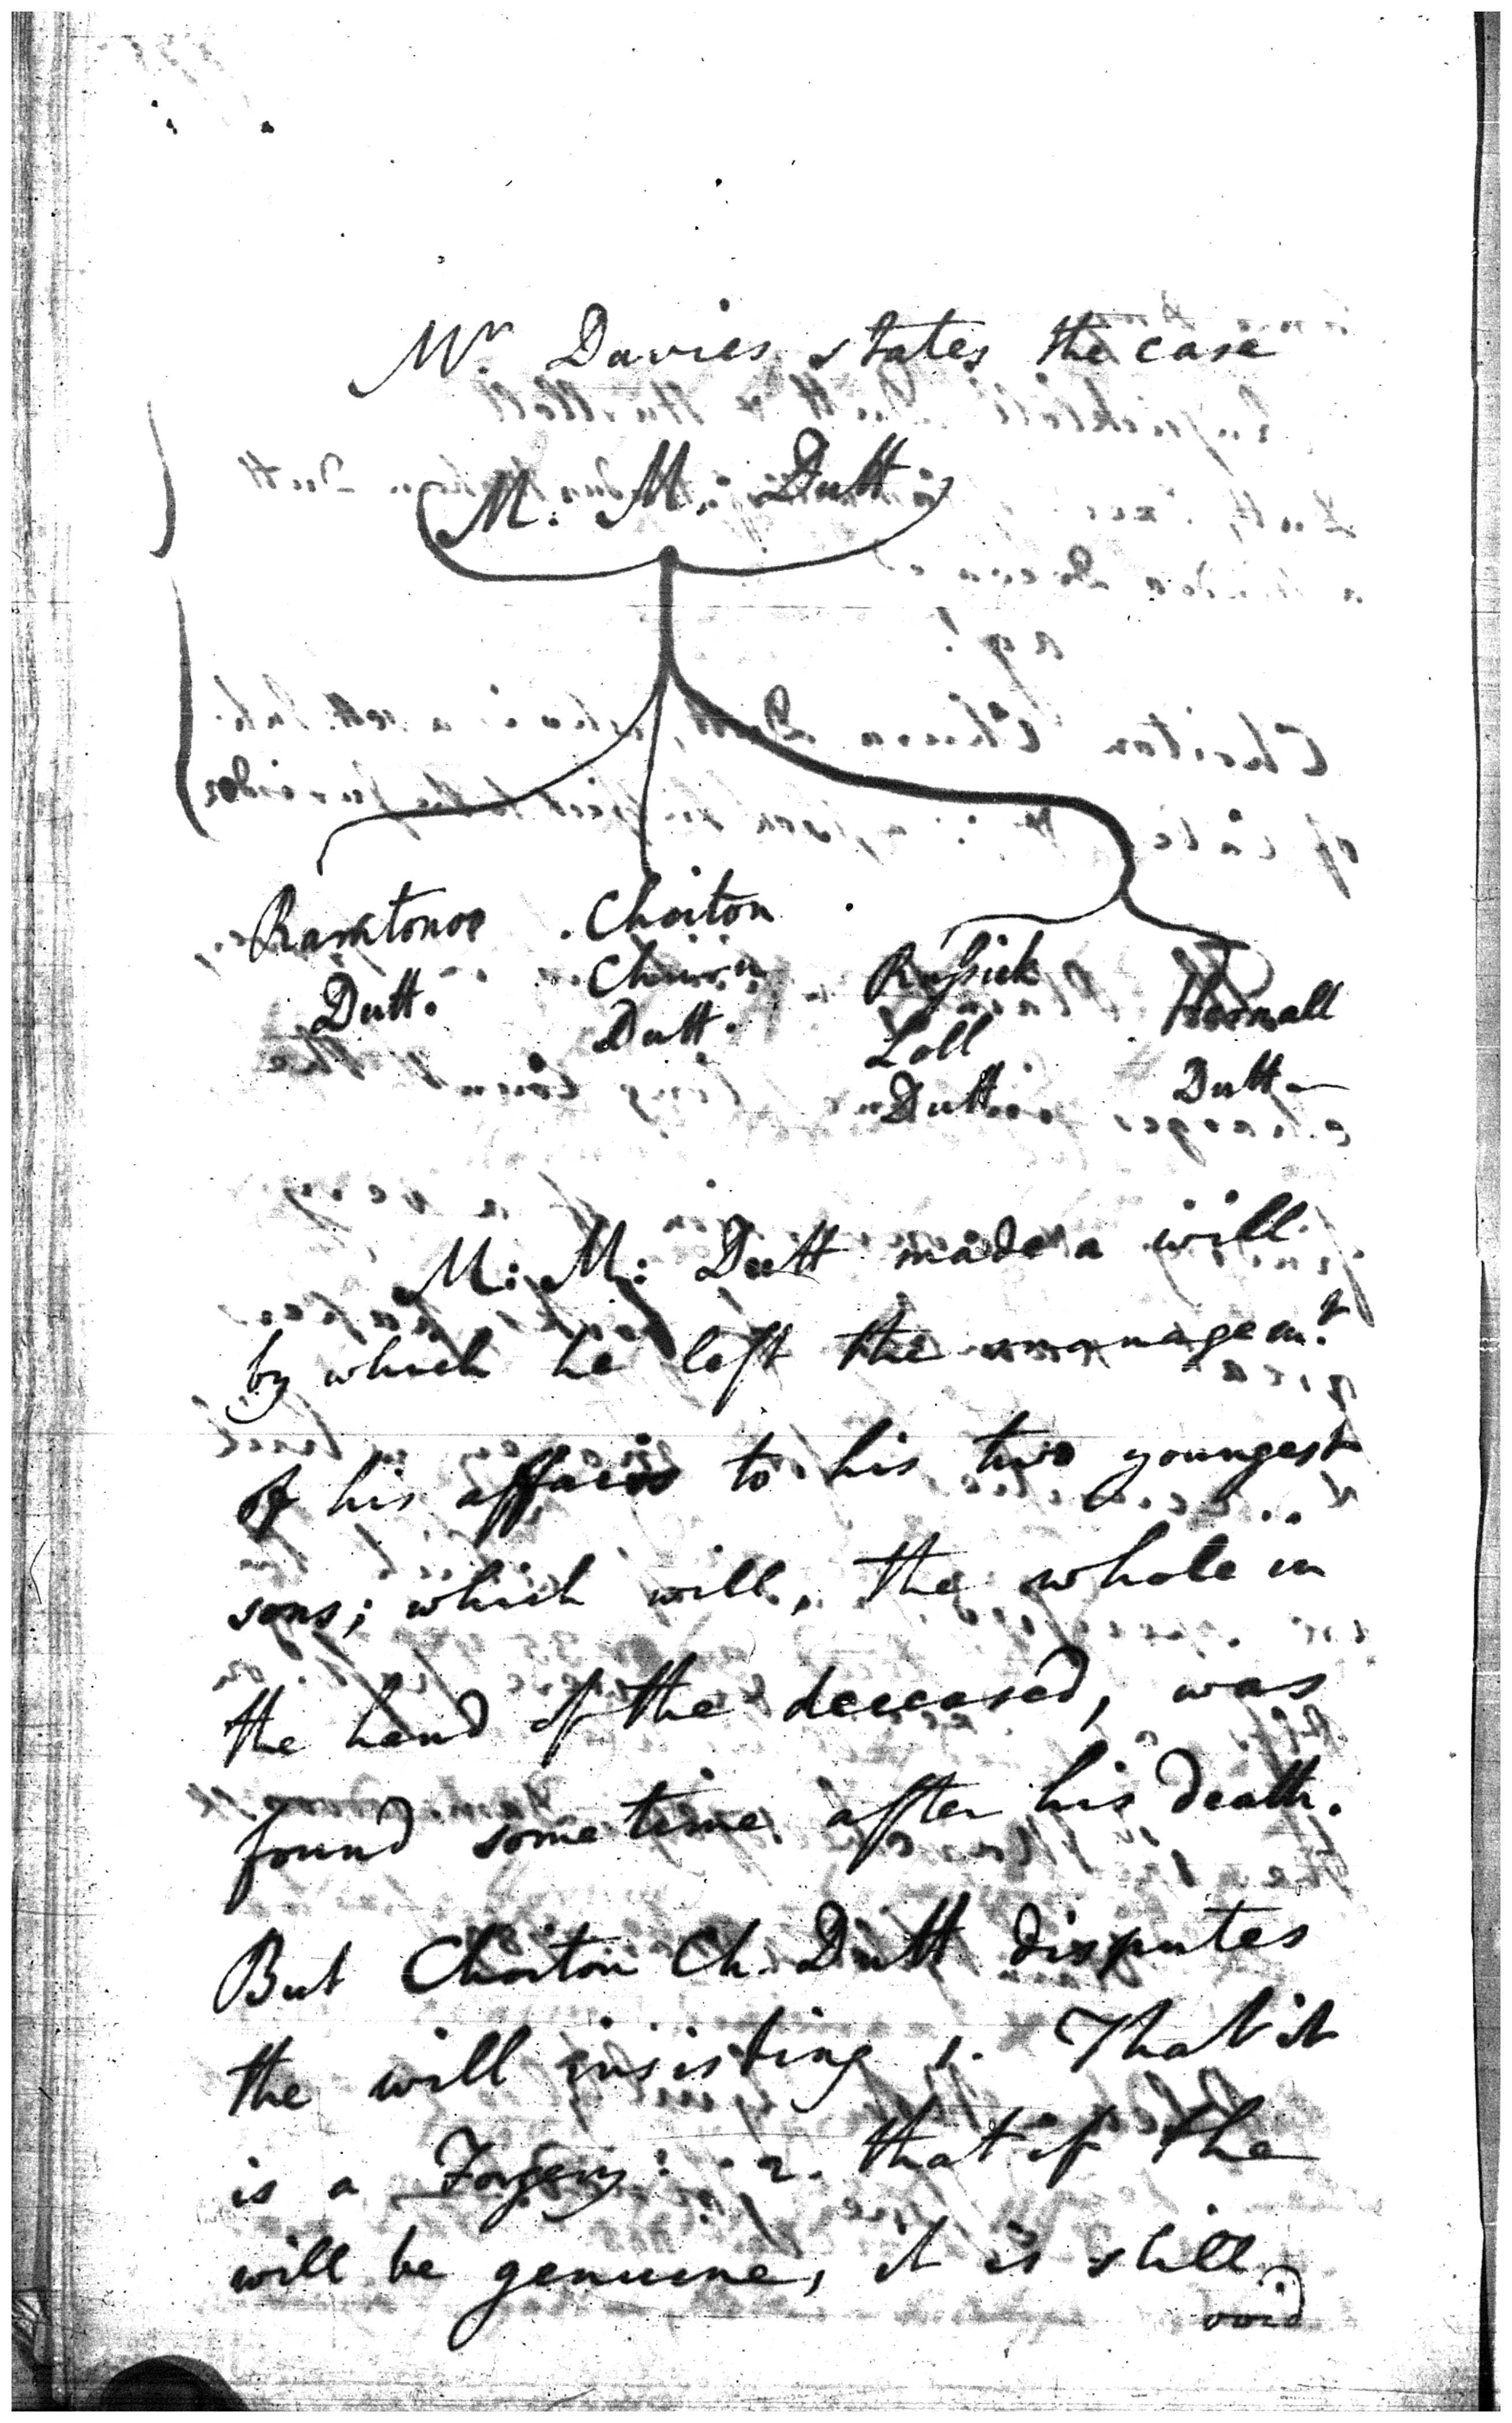 Mr Davies states the case
M: M: Dutt
Choiton
Dutt.
Churn
Dutt.
Russick
Loll
Dutt
Dutt
M: M: Dutt made a will
by which he left the managemt
of his affairs to his two youngest
sons; which will, the whole in
the hand of the deceased, was
found some time after his death.
But Choiton Ch. Dutt disputes
the will insisting 1. That it
is a Forgery: 2. that if the
will be genuine, it is still
void